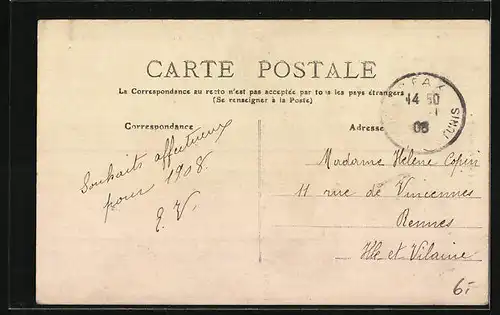 CARTE POSTALE
La Correspondance au recto n'est pas acceptée par tous les pays étrangers
(Se renseigner à la Poste)
SFAX
14 50
08
TUNIS
Correspondance
Adresse
Souhaits affectueux
pour 1908.
E. V.
Madame Hélène Copin
11 rue de Vincennes
Rennes
Ille et Vilaine
6.-